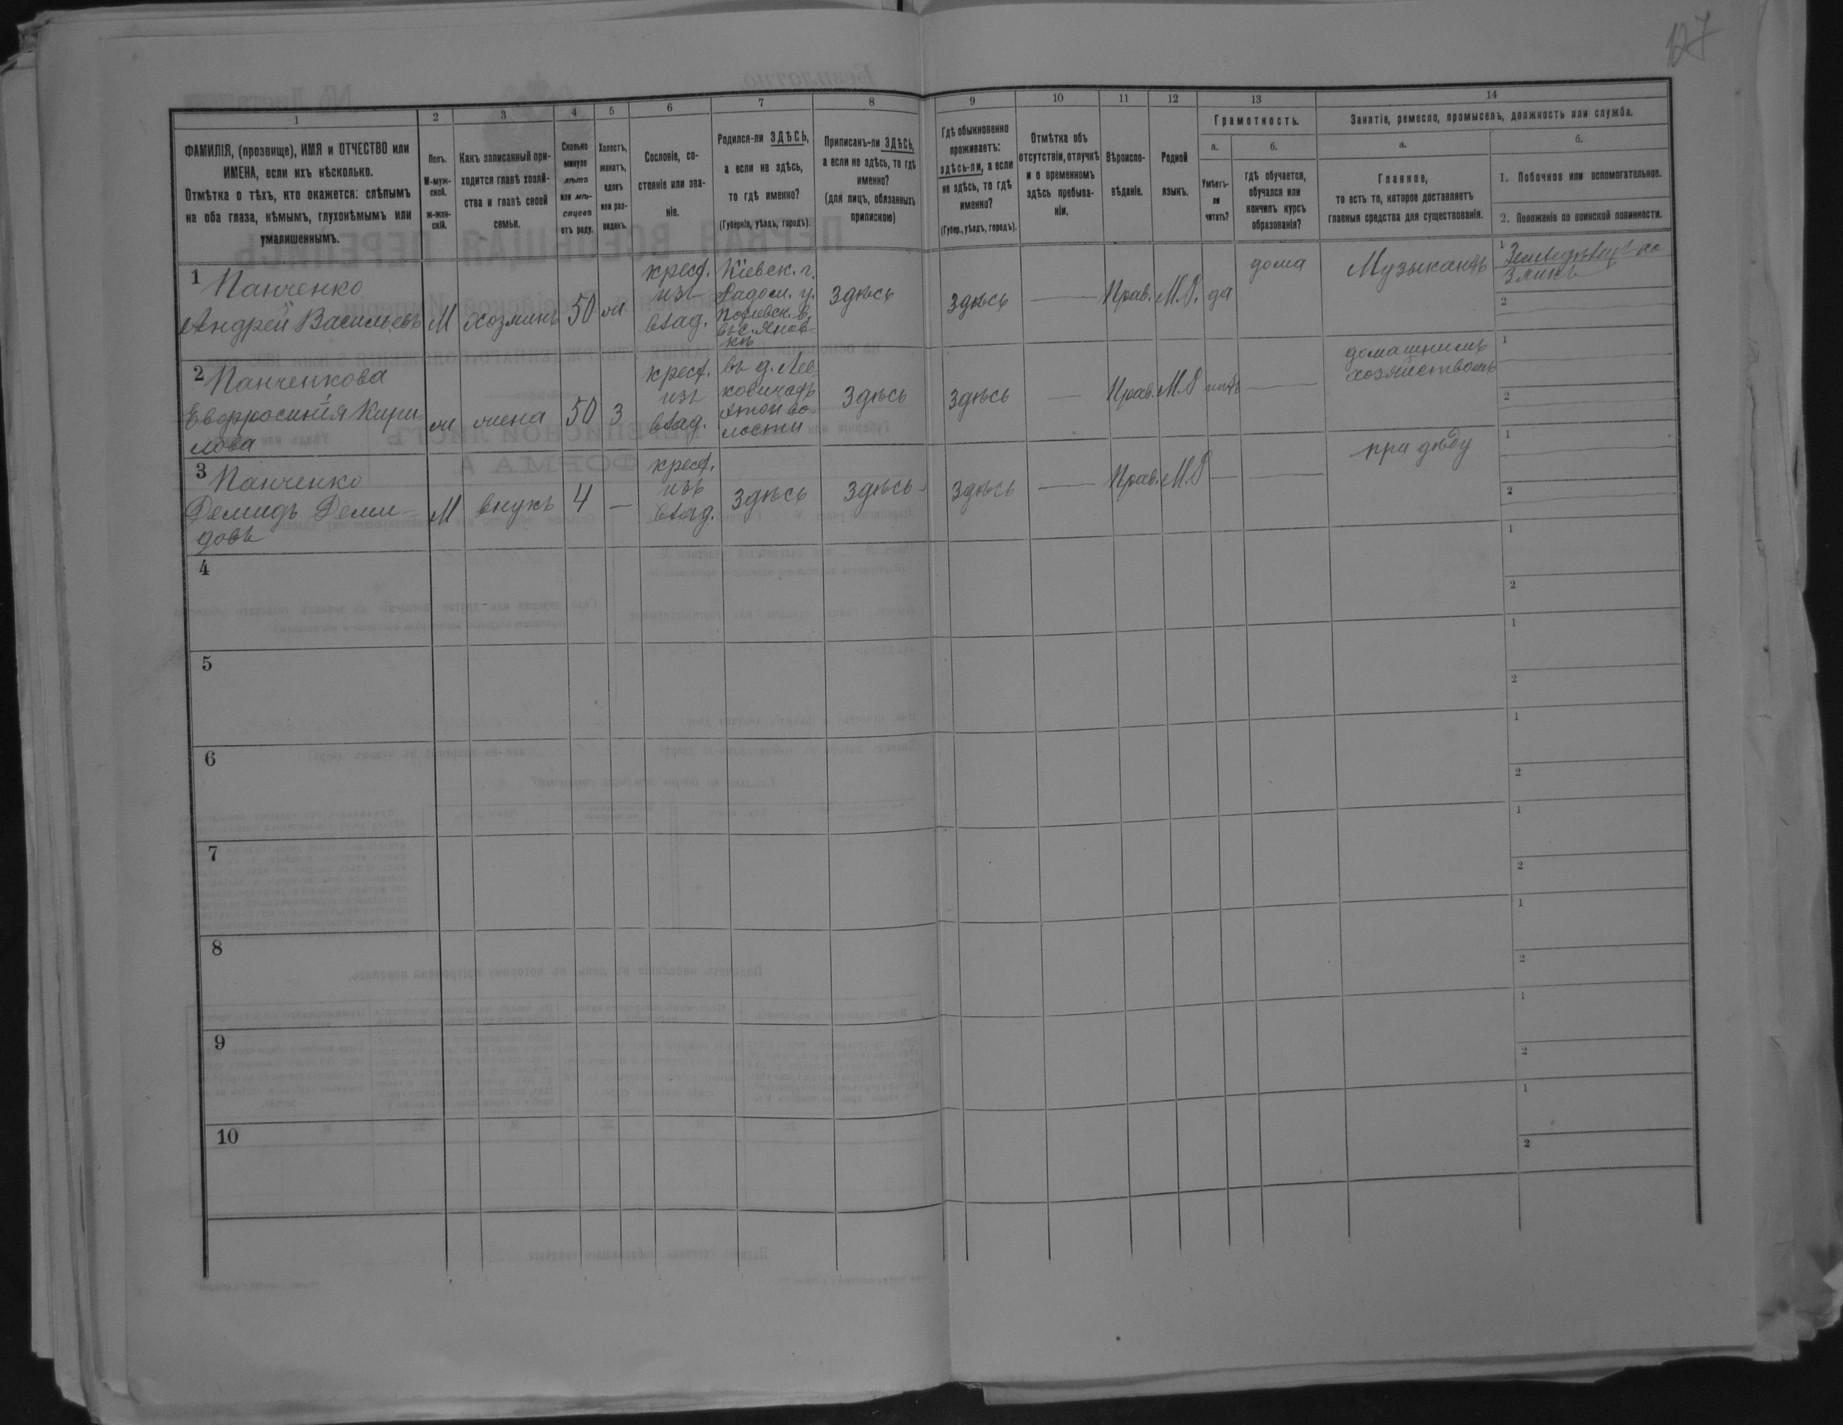 127
1
2
3
4
5
6
7
8
9
10
11
12
13
14
ФАМИЛІЯ, (прозвище), ИМЯ и ОТЧЕСТВО или
ИМЕНА, если ихъ нѣсколько.
Отмѣтка о тѣхъ, кто окажется: слѣпымъ
на оба глаза, нѣмымъ, глухонѣмымъ или
умалишеннымъ.
Полъ.
М-муж-
ской.
ж-жен-
скій.
Какъ записанный при-
ходится главѣ хозяй-
ства и главѣ своей
семьи.
Сколько
минуло
лѣтъ
или мѣ-
сяцевъ
отъ роду.
Холостъ,
женатъ,
вдовъ
или раз-
веденъ.
Сословіе, со-
стояніе или зва-
ніе.
Родился-ли ЗДѢСЬ,
а если не здѣсь,
то гдѣ именно?
(Губернія, уѣздъ, городъ).
Приписанъ-ли ЗДѢСЬ,
а если не здѣсь, то гдѣ
именно?
(для лицъ, обязанныхъ
припискою)
Гдѣ обыкновенно
проживаетъ:
здѣсь-ли, а если
не здѣсь, то гдѣ
именно?
(Губер., уѣздъ, городъ).
Отмѣтка объ
отсутствіи, отлучкѣ
и о временномъ
здѣсь пребыва-
ніи.
Вѣроиспо-
вѣданіе.
Родной
языкъ.
Грамотность.
а.
Умѣетъ-
ли
читать?
б.
гдѣ обучается,
обучался или
кончилъ курсъ
образованія?
Занятіе, ремесло, промыселъ, должность или служба.
а.
Главное,
то есть то, которое доставляетъ
главныя средства для существованія.
б.
1. Побочное или вспомогательное.
2. Положеніе по воинской повинности.
1 Панченко
Андрей Васильевъ
М
хозяинъ
50
ж
крест.
изъ
влад.
Кіевск. г.
Радом. у.
въ с. Янов-
кѣ
здѣсь
здѣсь
Прав.
М.Р.
да
дома
Музыкантъ
1
2
2 Панченкова
Евфросинія Кири
лова
ж
жена
50
З
крест.
изъ
влад.
въ д. Лев
ковичахъ
этой во-
лости
здѣсь
здѣсь
Прав.
М.Р
нѣтъ
домашнимъ
хозяйствомъ
1
2
3 Панченко
Демидъ Деми-
довъ
М
внукъ
4
—
крест.
изъ
влад.
здѣсь
здѣсь
здѣсь
Прав.
М.Р
при дѣду
1
2
4
1
2
5
1
2
6
1
2
7
1
2
8
1
2
9
1
2
10
1
2